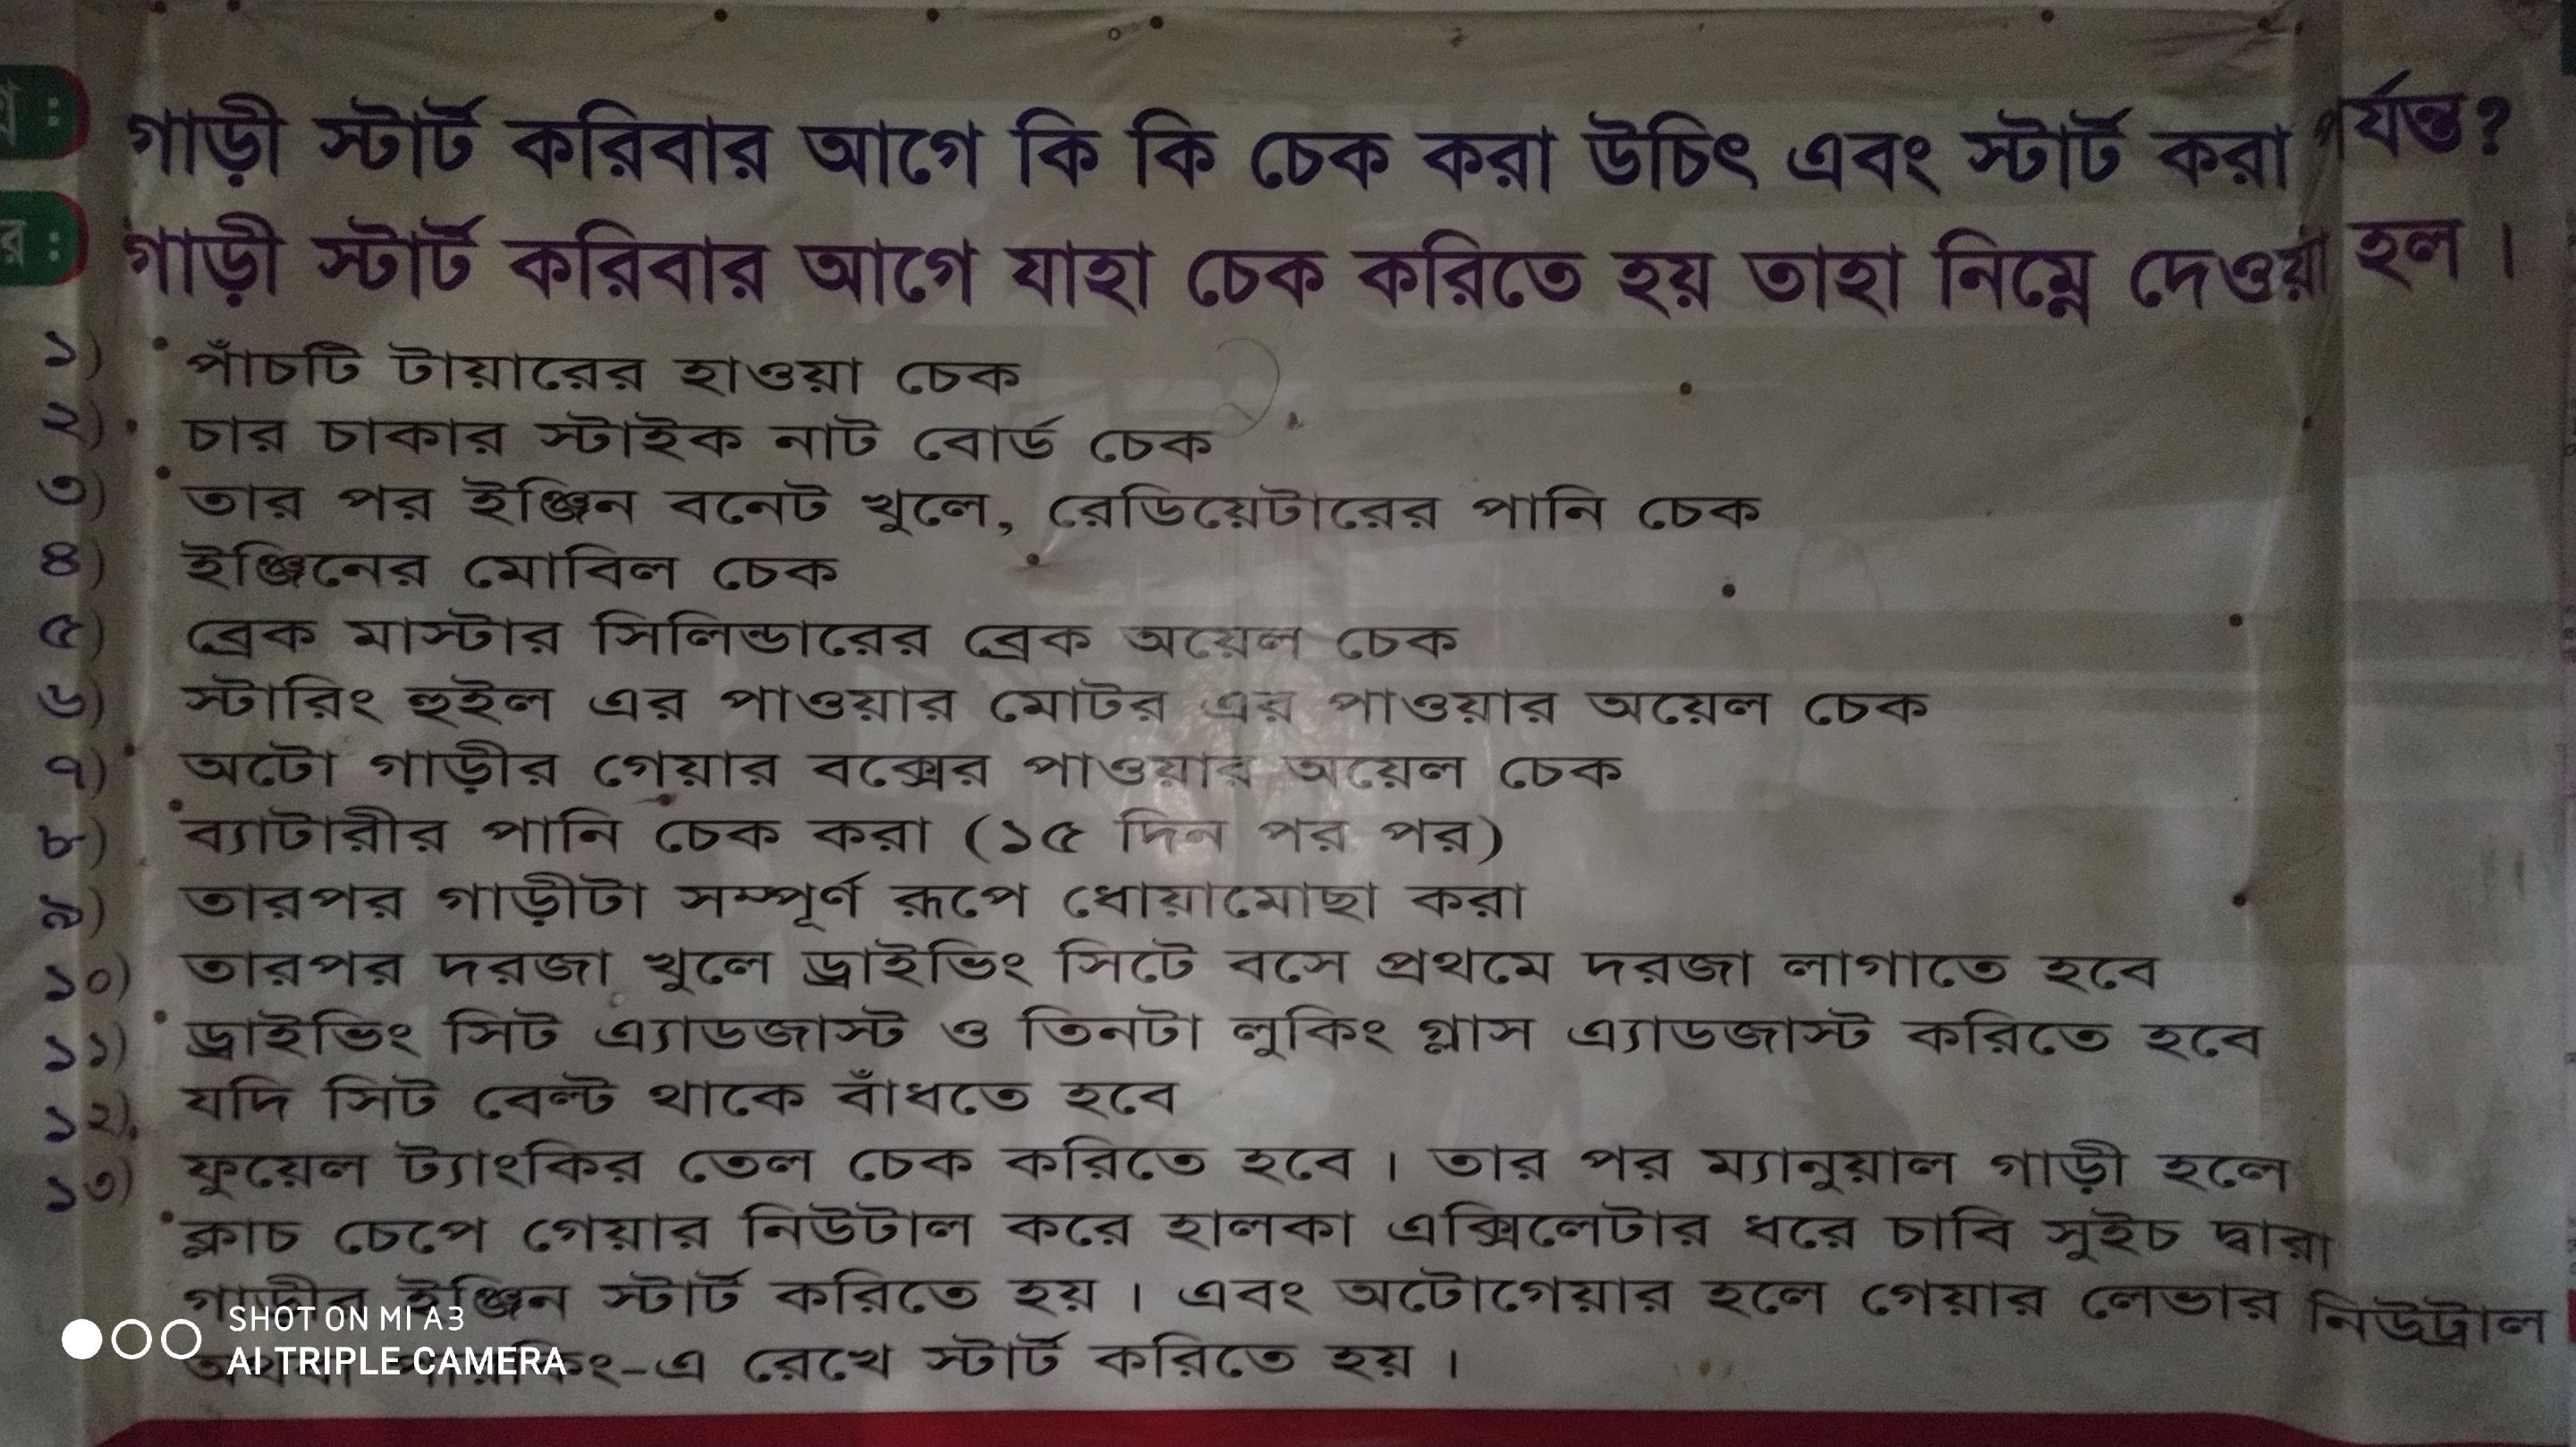 গাড়ী স্টার্ট করিবার আগে কি কি চেক করা উচিৎ এবং স্টার্ট করা পর্যন্ত?
গাড়ী স্টার্ট করিবার আগে যাহা চেক করিতে হয় তাহা নিম্নে দেওয়া হল ।
১) পাঁচটি টায়ারের হাওয়া চেক
২) চার চাকার স্টাইক নাট বোর্ড চেক
৩) তার পর ইঞ্জিন বনেট খুলে, রেডিয়েটারের পানি চেক
৪) ইঞ্জিনের মোবিল চেক
৫) ব্রেক মাস্টার সিলিন্ডারের ব্রেক অয়েল চেক
৬) স্টারিং হুইল এর পাওয়ার মোটর এর পাওয়ার অয়েল চেক
৭) অটো গাড়ীর গেয়ার বক্সের পাওয়ার অয়েল চেক
৮) ব্যাটারীর পানি চেক করা (১৫ দিন পর পর)
৯) তারপর গাড়ীটা সম্পূর্ণ রূপে ধোয়ামোছা করা
১০) তারপর দরজা খুলে ড্রাইভিং সিটে বসে প্রথমে দরজা লাগাতে হবে
১১) ড্রাইভিং সিট এ্যাডজাস্ট ও তিনটা লুকিং গ্লাস এ্যাডজাস্ট করিতে হবে
১২) যদি সিট বেল্ট থাকে বাঁধতে হবে
১৩) ফুয়েল ট্যাংকির তেল চেক করিতে হবে । তার পর ম্যানুয়াল গাড়ী হলে
ক্লাচ চেপে গেয়ার নিউটাল করে হালকা এক্সিলেটার ধরে চাবি সুইচ দ্বারা
গাড়ীর ইঞ্জিন স্টার্ট করিতে হয় । এবং অটোগেয়ার হলে গেয়ার লেভার নিউট্রাল
-এ রেখে স্টার্ট করিতে হয় ।
SHOT ON MI A3
AI TRIPLE CAMERA